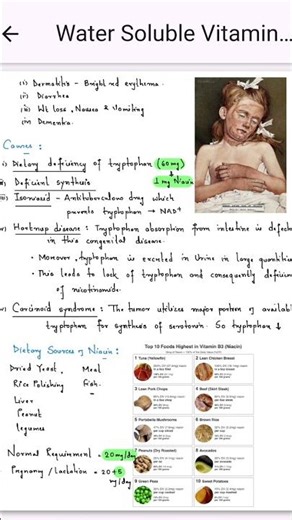 Water Soluble Vitamin...
(i) Dermatitis - Bright red erythema.
(ii) Diarrhea
(iii) Wt loss, Nausea & Vomiting
(iv) Dementia.
Causes :
i) Dietary deficiency of tryptophan (60mg)
↓
1 mg Niacin
ii) Deficient synthesis
iii) Isoniazid - Antituberculous drug which
prevents tryptophan → NAD+
iv) Hartnup disease : Tryptophan absorption from intestine is defective
in this congenital disease.
• Moreover, tryptophan is excreted in Urine in large quantities
• This leads to lack of tryptophan and consequently deficiency
of nicotinamide.
v) Carcinoid syndrome : The tumor utilizes major portion of available
tryptophan for synthesis of serotonin. So tryptophan ↓
Dietary Sources of Niacin :
Dried Yeast, Meal
Rice Polishing Fish.
Liver
Peanut
legumes
Normal Requirement = 20 mg/day
Pregnany / Lactation = 20+5
mg/day
Top 10 Foods Highest in Vitamin B3 (Niacin)
1 Tuna (Yellowfin)
2 Lean Chicken Breast
3 Lean Pork Chops
4 Beef (Skirt Steak)
5 Portabella Mushrooms
6 Brown Rice
7 Peanuts (Dry Roasted)
8 Avocados
9 Green Peas
10 Sweet Potatoes